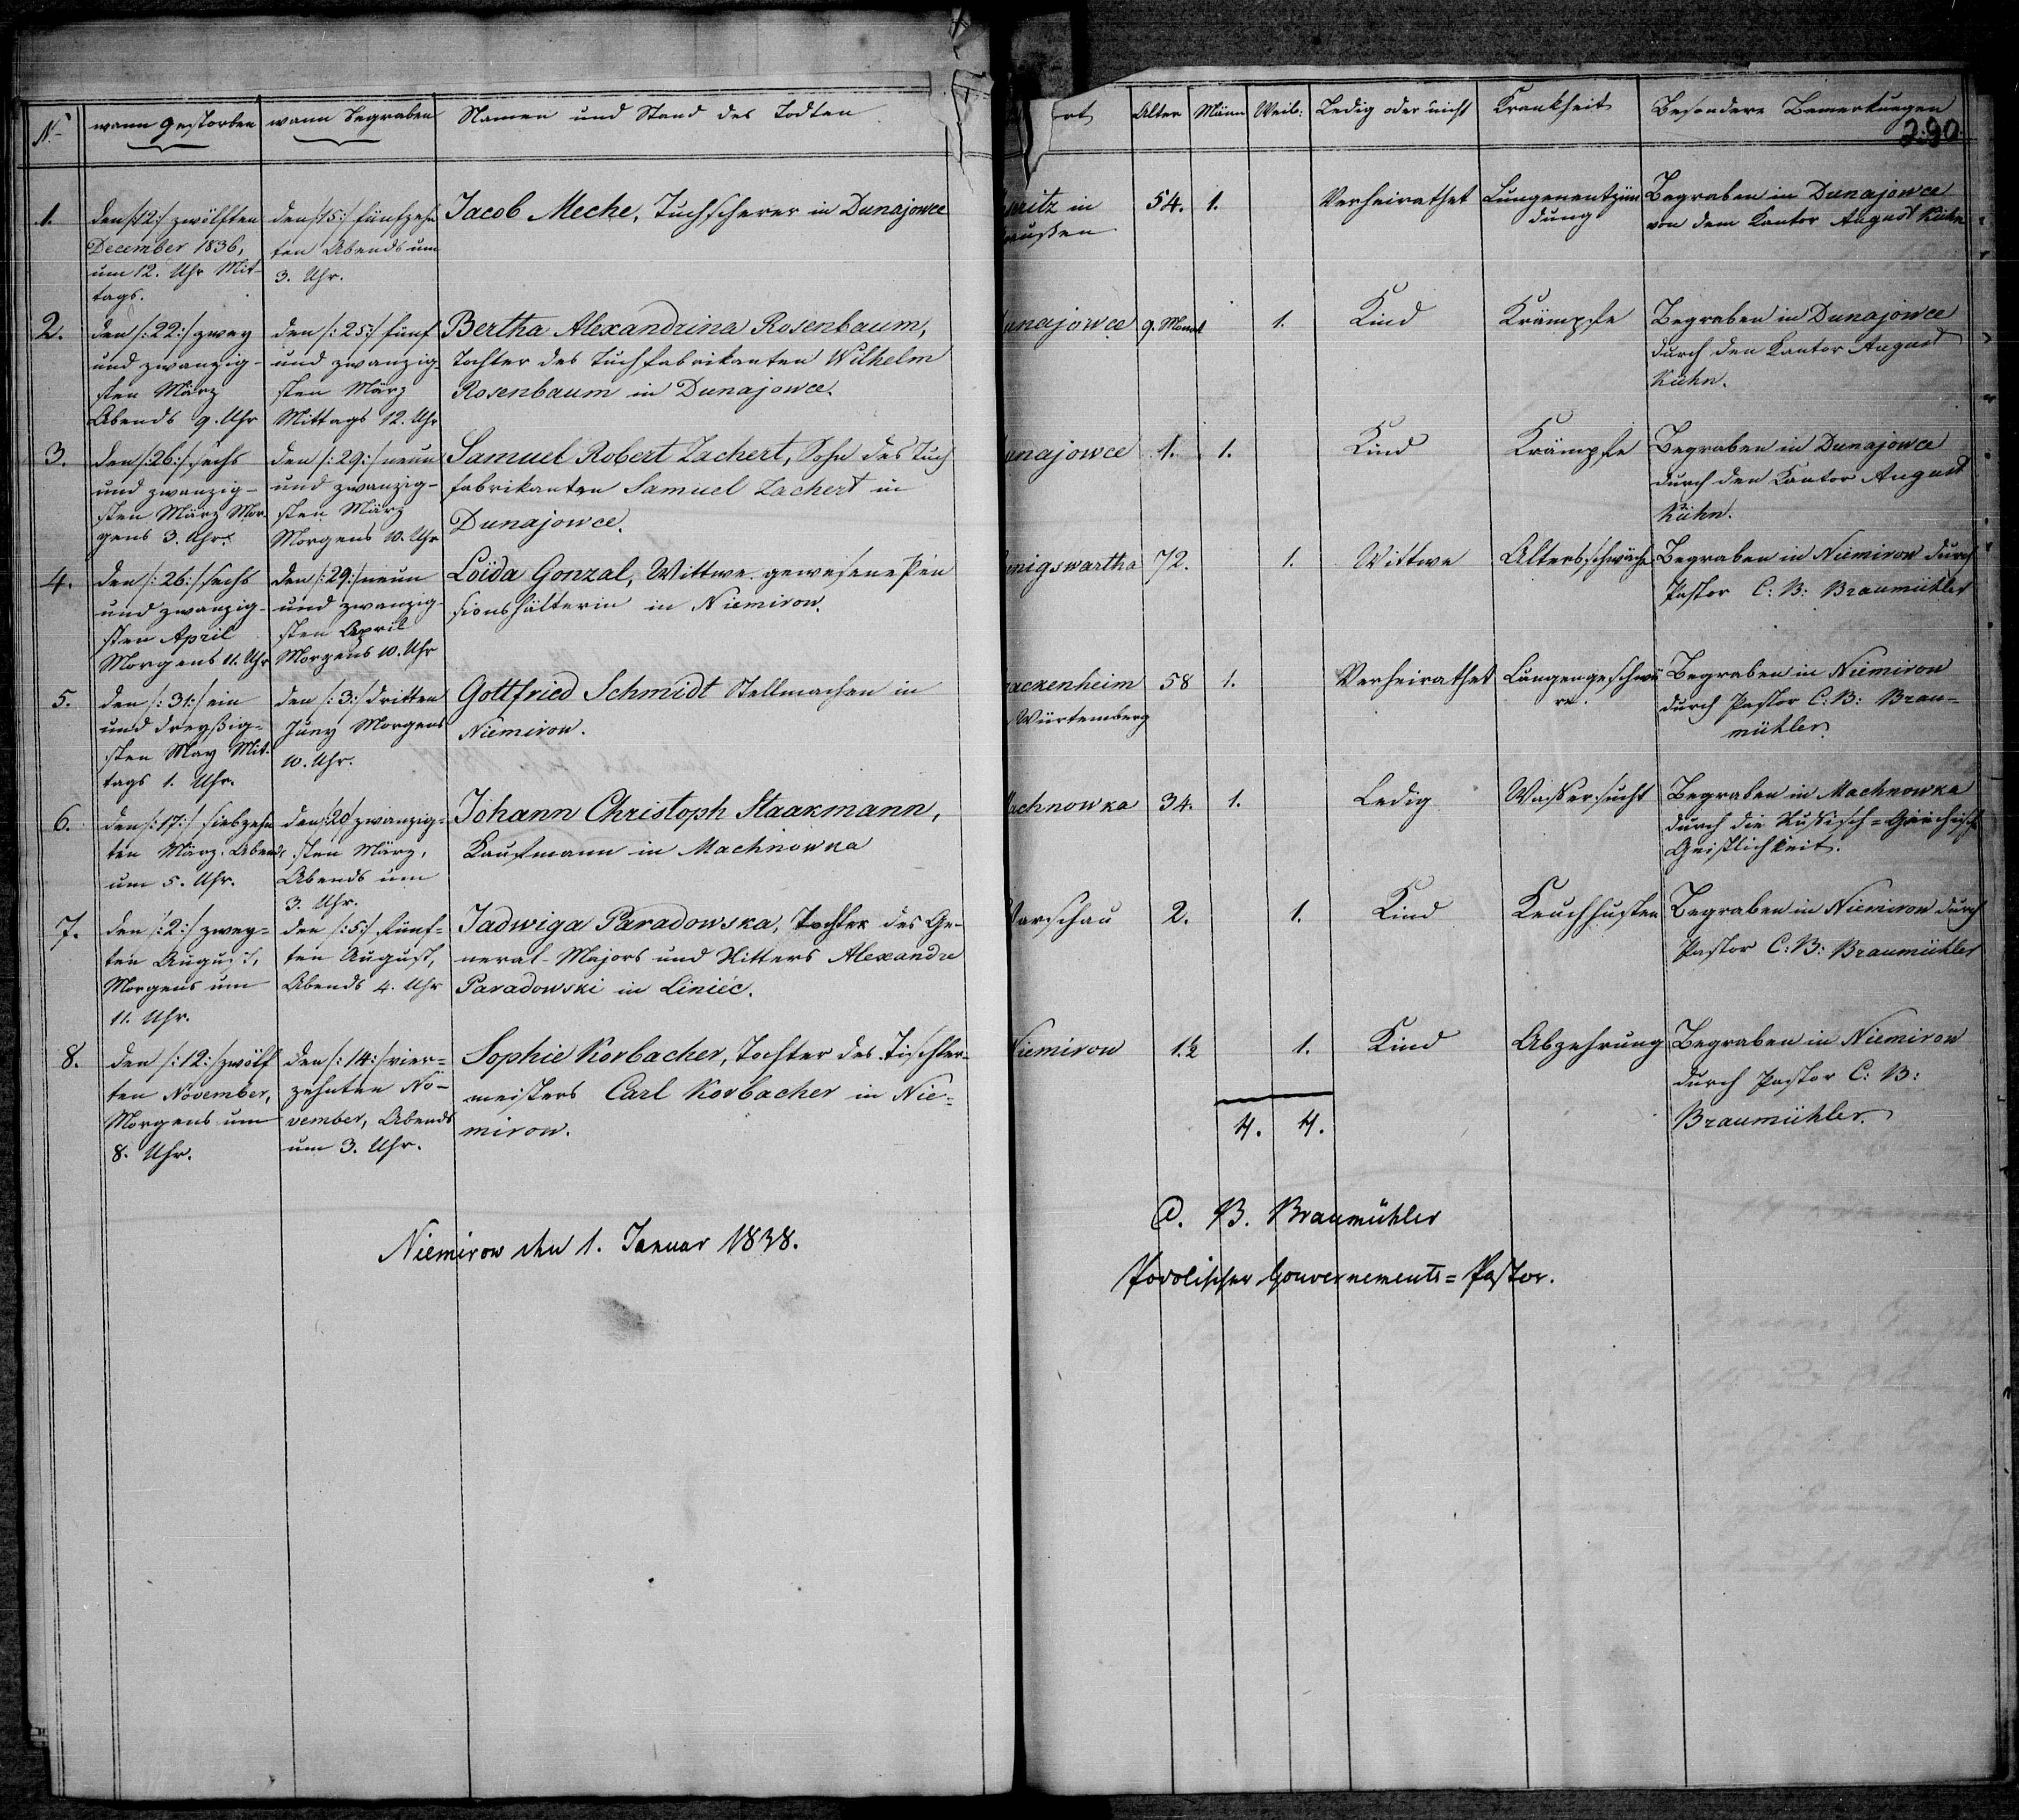 N.º wann gestorben wann begraben Namen und Stand des Todten
1. den /:12:/ zwölften den /:15:/ fünfzehn Jacob Meche, Tuchscherer in Dunajowce
December 1836, ten Abends um
um 12. Uhr Mit- 3. Uhr.
tags.
2. den /:22:/ zwey den /:25:/ fünf Bertha Alexandrina Rosenbaum,
und zwanzig- und zwanzig- Tochter des Tuchfabrikanten Wilhelm
sten März sten März Rosenbaum in Dunajowce.
Abends 9. Uhr Mittags 12. Uhr
3. den /:26:/ sechs den /:29:/ neun Samuel Robert Zachert, Sohn des Tuch
und zwanzig- und zwanzig- fabrikanten Samuel Zachert in
sten März Mor- sten März Dunajowce.
gens 3. Uhr. Morgens 10. Uhr
4. den /:26:/ sechs den /:29:/ neun Loïda Gonzal, Wittwe gewesene Pen
und zwanzig- und zwanzig- sionshälterin in Niemirow.
sten April sten April
Morgens 11. Uhr Morgens 10. Uhr
5. den /:31:/ ein den /:3:/ dritten Gottfried Schmidt Stellmacher in
und dreyßig- Juny Morgens Niemirow.
sten May Mit- 10. Uhr.
tags 1. Uhr.
6. den /:17:/ siebzehn den /:20 zwanzig- Johann Christoph Staakmann,
ten März. Abends sten März, Kaufmann in Machnowka
um 5. Uhr. Abends um
3. Uhr.
7. den /:2:/ zwey= den /:5:/ fünf= Jadwiga Paradowska, Tochter des Ge-
ten August, ten August, neral-Majors und Ritters Alexandre
Morgens um Abends 4. Uhr Paradowski in Liniéc.
11. Uhr.
8. den /:12:/ zwölf den /:14:/ vier= Sophie Korbacher, Tochter des Tischler-
ten November, zehnten No- meisters Carl Korbacher in Nie-
Morgens um vember, Abends mirow.
8. Uhr. um 3. Uhr.
Niemirow den 1. Januar 1838.
ort Alter Männ Weib: Ledig oder nicht Krankheit Besondere Bemerkungen
290.
ritz in 54. 1. Verheirathet Lungenentzün Begraben in Dunajowce
eußen dung von dem Kantor August Kühn
unajowce 9. Monat 1. Kind Krämpfe Begraben in Dunajowce
durch den Kantor August
Kühn.
unajowce 1. 1. Kind Krämpfe Begraben in Dunajowce
durch den Kantor August
Kühn.
nigswartha 72. 1. Wittwe Altersschwäche Begraben in Niemirow durch
Pastor C: B: Braumühler
rackenheim 58 1. Verheirathet Lungengeschwü Begraben in Niemirow
Würtemberg re. durch Pastor C: B: Brau=
mühler.
achnowka 34. 1. Ledig Wassersucht Begraben in Machnowka
durch die Russisch=Griechische
Geistlichkeit.
Warschau 2. 1. Kind Keuchhusten Begraben in Niemirow durch
Pastor C: B: Braumühler
Niemirow 1½ 1. Kind Abzehrung Begraben in Niemirow
durch Pastor C: B:
Braumühler.
4. 4.
C. B. Braumühler
Podolischer Gouvernements=Pastor.